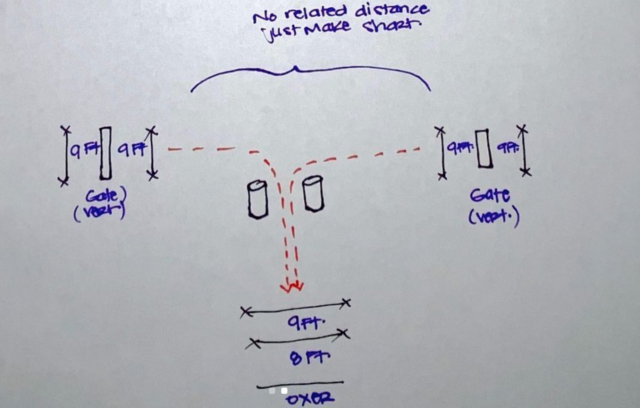 No related distance
just make short
9 Ft 9 Ft.
Gate)
(vert)
9Ft. 9Ft.
Gate
(vert.)
9Ft.
8 Ft.
OXER